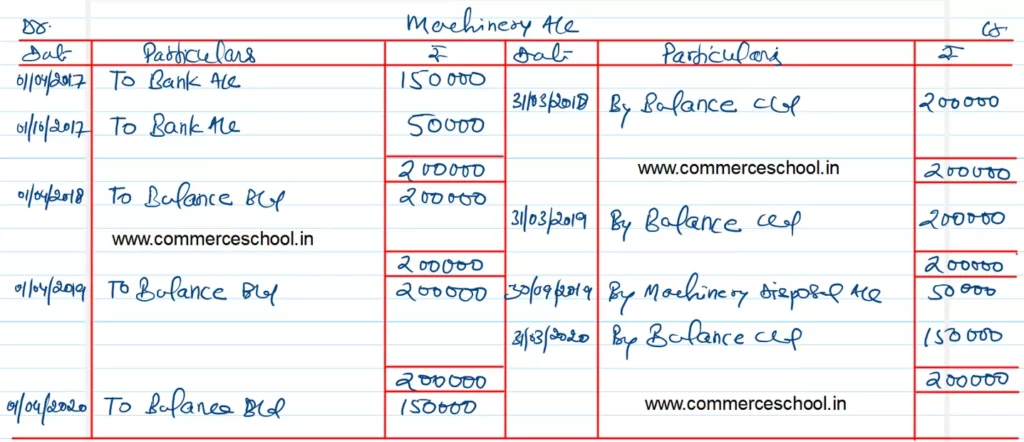 Dr. Machinery A/c Cr.
Date Particulars ₹ Date Particulars ₹
01/04/2017 To Bank A/c 150000
31/03/2018 By Balance c/d 200000
01/10/2017 To Bank A/c 50000
www.commerceschool.in
200000 200000
01/04/2018 To Balance B/d 200000
31/03/2019 By Balance c/d 200000
www.commerceschool.in
200000 200000
01/04/2019 To Balance B/d 200000 30/09/2019 By Machinery Disposal A/c 50000
31/03/2020 By Balance c/d 150000
200000 200000
01/04/2020 To Balance B/d 150000 www.commerceschool.in